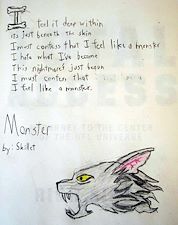 I feel it deep within
its just beneath the skin
I must confess that I feel like a monster
I hate what I've become
This nightmare just begun
I must confess that
I feel like a monster.
Monster
by: Skillet
JOURNEY TO THE CENTER
THE NFL UNIVERSE